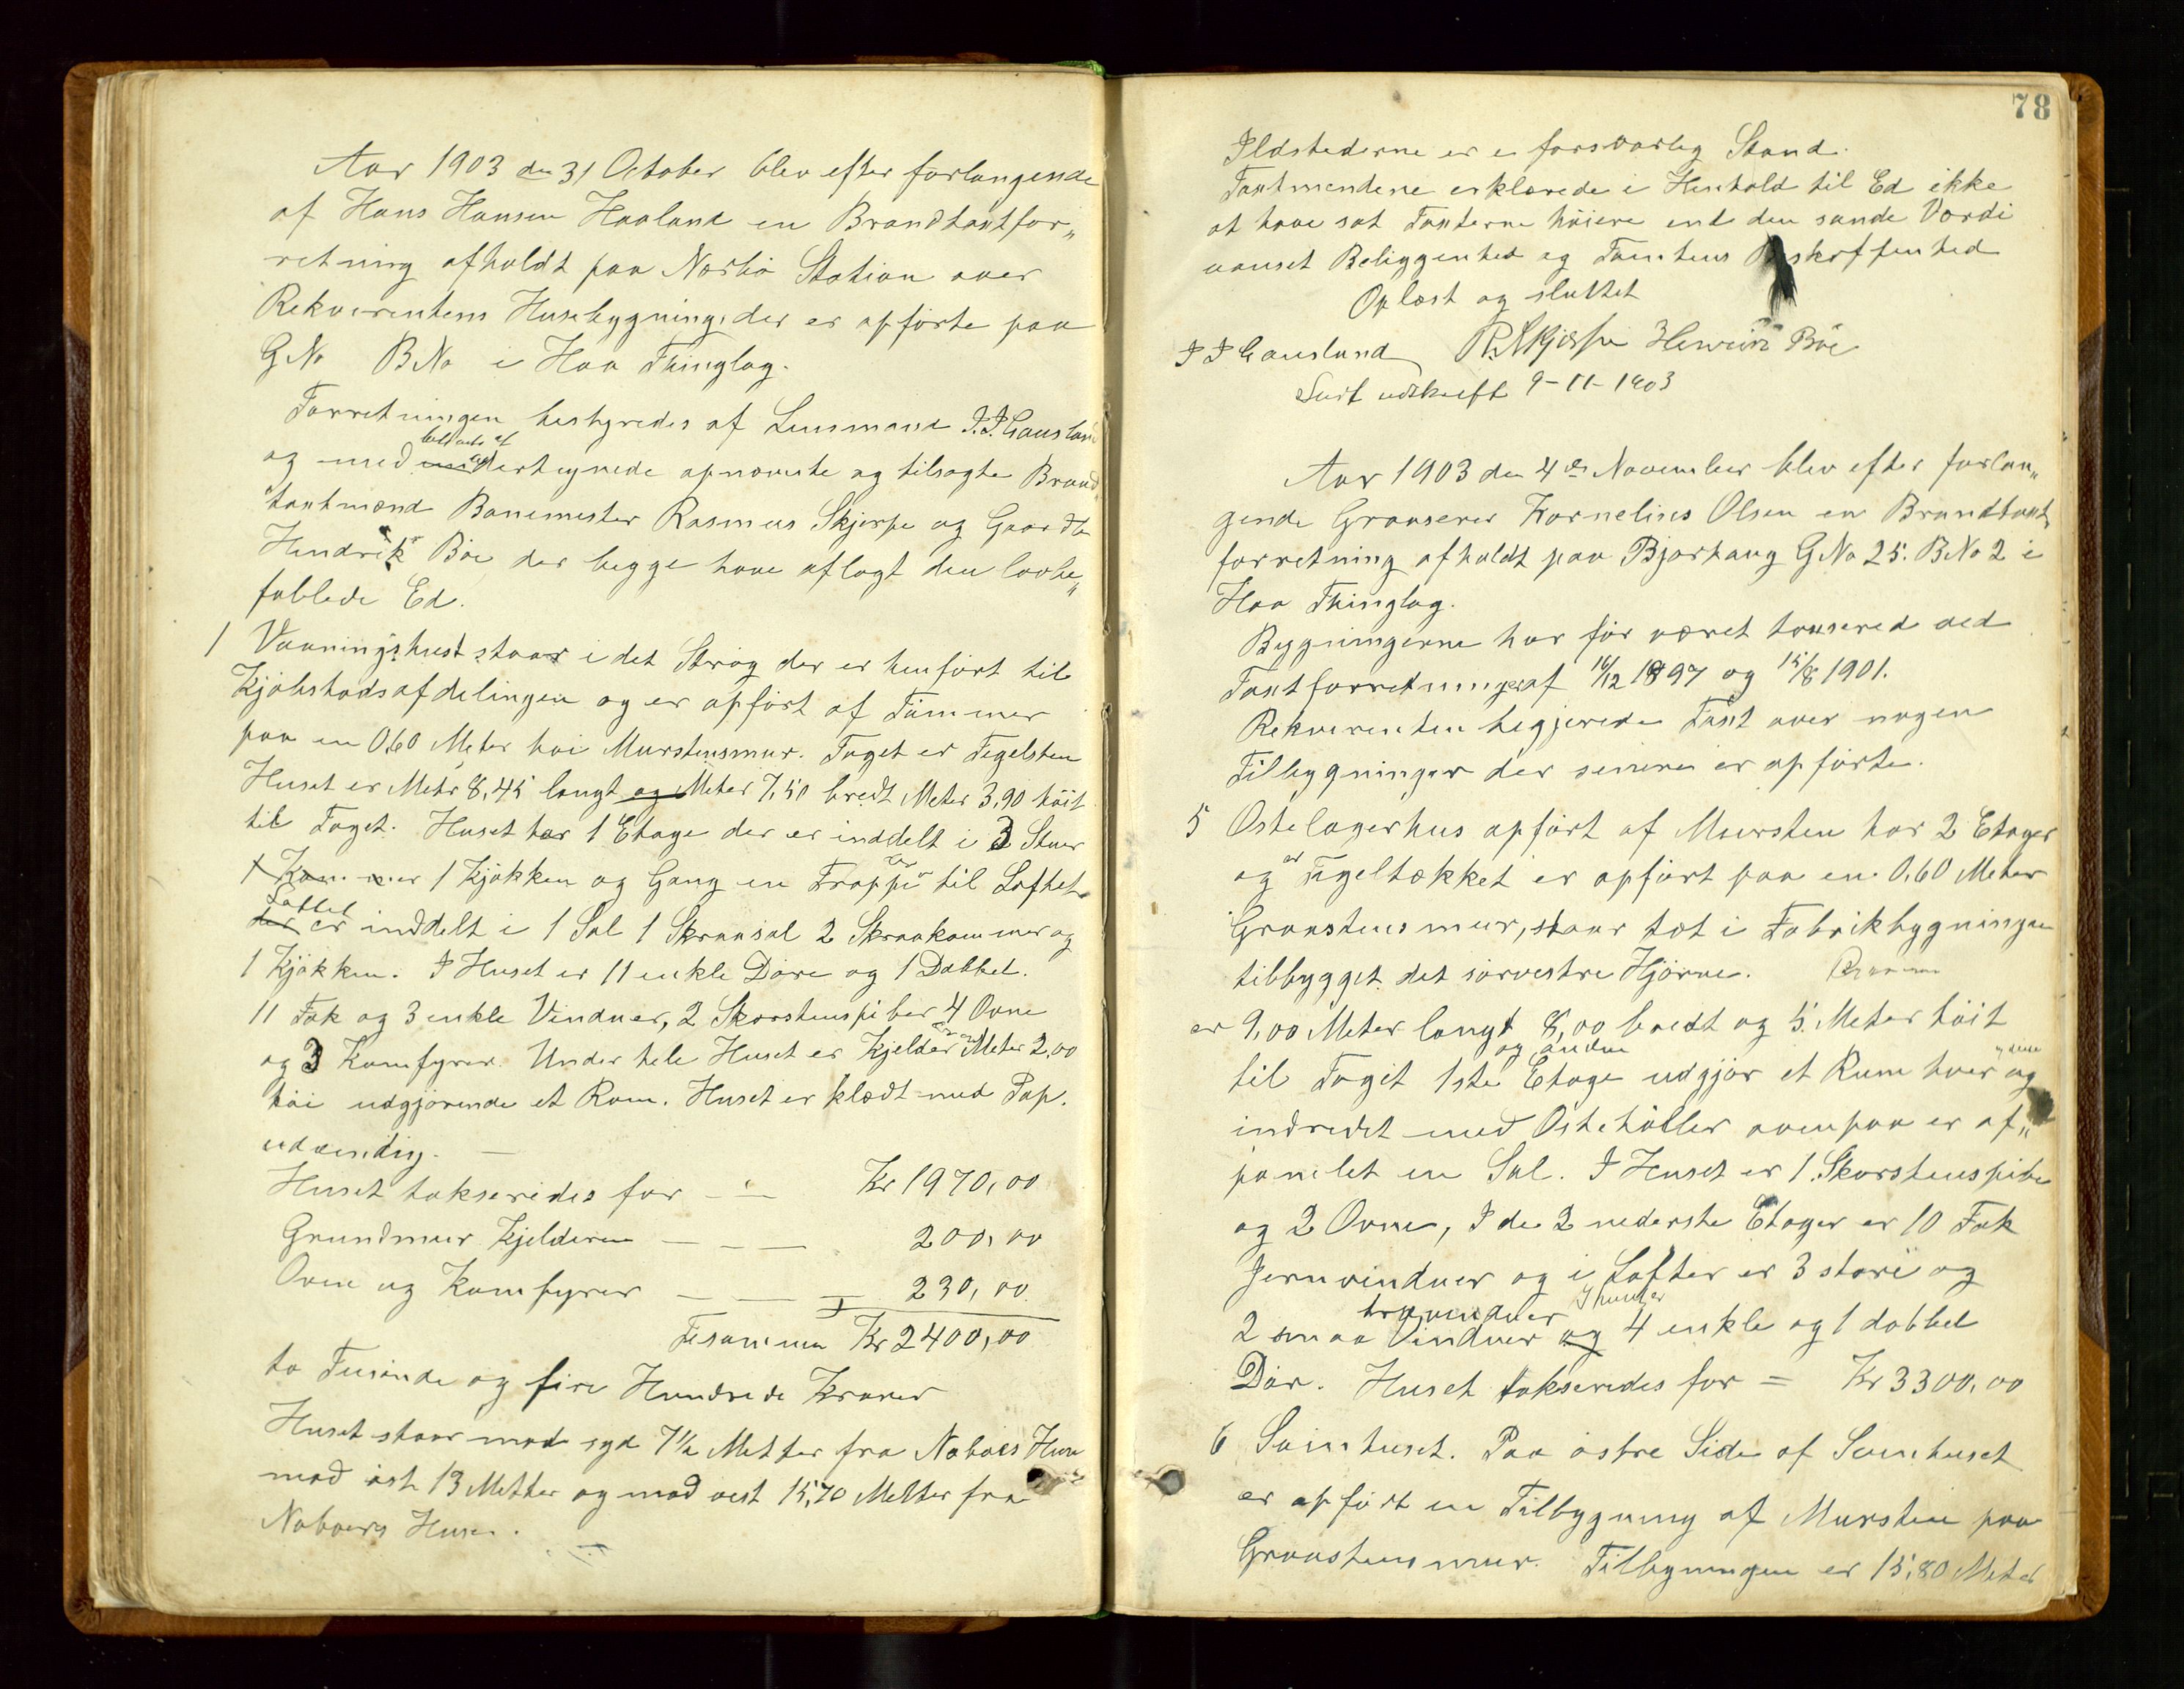 Aar 1903 den 31 October blev efter forlangende
af Hans Hansen Haaland en Brandtaxtfor„
retning afholdt paa Nærbø Station over
Rekvirentens Husebygninge der er opførte paa
G No B No i Haa Thinglag.
Forretningen bestyredes af Lensmand J. J. Gausland
og med undertegnede opnævnte og tilsagte Brand
taxtmænd Banemester Rasmus Skjerpe og Gaardbr
Hendrik Bøe der begge have aflagt den lovbe„
falede Ed.
1 Vaaningshuset staar i det Strøg der er henført til
Kjøbstadsafdelingen og er opført af Tømmer
paa en 0,60 Meter høi Murstensmur. Taget er Tegelsten
Huset er Meter 8,45 langt og Meter 7,50 bredt Meter 3,90 høit
til Taget. Huset har 1 Etage der er inddelt i 3 Stuer
1 Kammer 1 Kjøkken og Gang en Trappe til Loftet
Loftet
der er inddelt i 1 Sal 1 Skraasal 2 Skraakammer og
1 Kjøkken. I Huset er 11 enkle Døre og 1 Dobbel.
11 Fak og 3 enkle Vinduer, 2 Skorstenspiber 4 Ovne
og 3 Komfyrer. Under hele Huset er Kjelder Meter 2,00
høi udgjørende et Rom. Huset er klædt med Pap.
udvendig. —
Huset takseredes for — — Kr 1970,00
Grundmur Kjelderen — — — 200,00
Ovne og Komfyrer — — — 230,00
Tilsammen Kr 2400,00
to Tusinde og fire Hundrede Kroner
Huset staar mod syd 7½ Metter fra Naboes Huse
mod øst 13 Metter og mod vest 15,70 Metter fra
Naboers Huse.
78
Ildstederne er i forsvarlig Stand.
Taxtmendene erklærede i Henhold til Ed ikke
at have sat Taxterne høiere end den sande Værdi
uanset Beliggenhed og Tomtens Beskaffenhed
Oplæst og sluttet
J J Gausland R. Skjerpe Henrik Bøe
Suit udskrift 9-11-1903
Aar 1903 den 4de November blev efter forlan„
gende Grosserer Kornelius Olsen en Brandtaxt
forretning afholdt paa Bjorhaug G No 25. B No 2 i
Haa Thinglag.
Bygningerne har før været taxsered ved
Taxtforretninger af 16/12 1897 og 15/8 1901.
Rekvirenten begjerede Taxt over nogen
Tilbygninger der senere er opførte.
5 Ostelagerhus opført af Mursten har 2 Etager
og er Tegeltækket er opført paa en 0,60 Meter
Graastensmur, staar tæt i Fabrikbygningen
tilbygget det sørvestre Hjørne.
er 9,00 Meter langt 8,00 bredt og 5 Meter høit
og anden
til Taget 1ste Etage udgjør et Rum hver og
indredet med Ostehøller ovenpaa er af„
panelet en Sal. I Huset er 1 Skorstenspibe
og 2 Ovne, I de 2 nederste Etager er 10 Fak
Jernvinduer og i Lofter er 3 store og
trævinduer I huset er
2 smaa Vinduer og 4 enkle og 1 dobbel
Dør. Huset takseredes for = Kr 3300,00
6 Svinhuset. Paa østre Side af Svinhuset
er opført en Tilbygning af Mursten paa
Graastensmur. Tilbygningen er 15,80 Meter